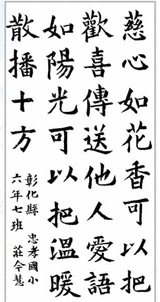 慈心如花香可以把
歡喜傳送他人愛語
如陽光可以把溫暖
散播十方
彰化縣 忠孝國小
六年七班 莊令慧